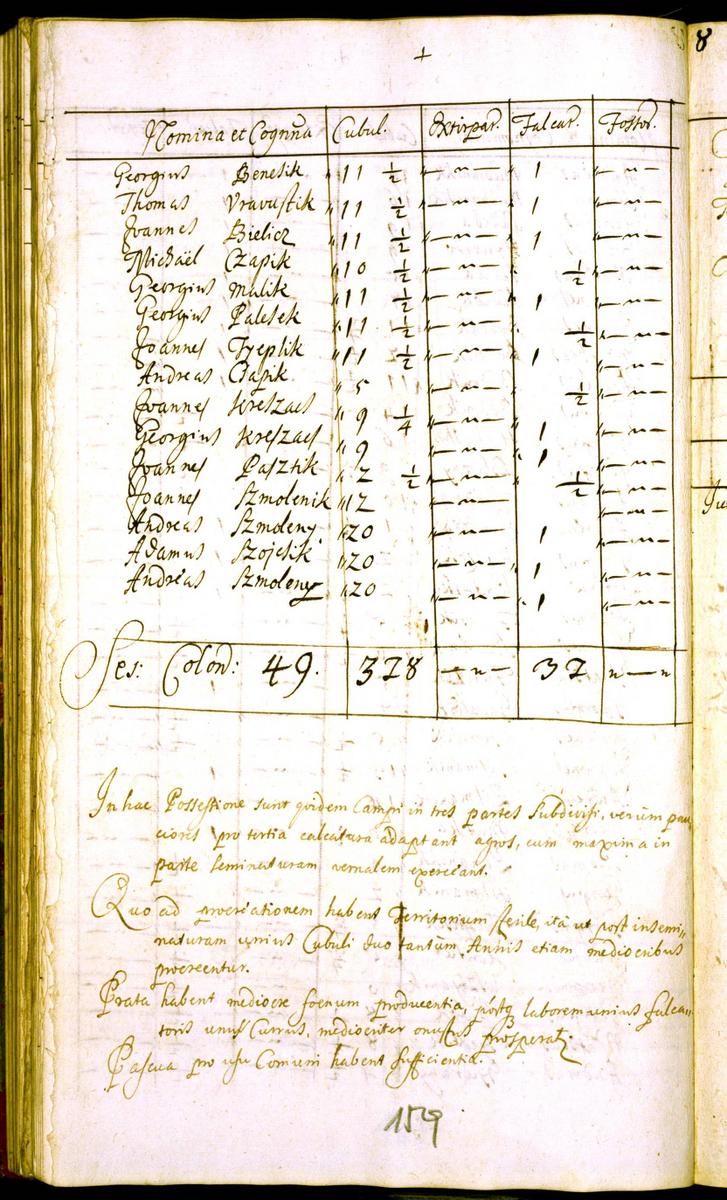 +
8
Nomina et Cognna Cubul. Extirpat. Falcat. Fossor.
Georgius Benesik " 11 1/2 "—"— " 1 "—"—
Thomas Vravustik " 11 1/2 "—"— " 1 "—"—
Joannes Bielicz " 11 1/2 "—"— " 1 "—"—
Michaël Czapik " 10 1/2 "—"— " 1/2 "—"—
Georgius Mulik " 11 1/2 "—"— " 1 "—"—
Georgius Palesek " 11 1/2 "—"— " 1/2 "—"—
Joannes Tyeplik " 11 1/2 "—"— " 1 "—"—
Andreas Csapik " 5 "—"— 1/2 "—"—
Joannes Kreszacs " 9 1/4 "—"— 1 "—"—
Georgius Kreszacs " 9 "—"— " 1 "—"—
Joannes Pasztik " 7 1/2 "—"— " 1/2 "—"—
Joannes Szmolenik " 12 "—"— "—"—
Andreas Szmoleny " 20 "—"— 1 "—"—
Adamus Szojesik " 20 "—"— " 1 "—"—
Andreas Szmoleny " 20 "—"— " 1 "—"—
Ses: Colon: 49. 378 —"— 32 "—"
In hac Possessione sunt quidem Campi in tres partes Subdivisi, verum pau
ciores pro tertia calcatura adaptant agros, cum maxima in
parte seminaturam vernalem exerceant.
Quo ad procreationem habent Territorium sterile, ita ut post insemi„
naturam unius Cubuli duo tantum Annis etiam mediocribus
procreentur.
Prata habent mediocre foenum producentia, postq laborem unius falca„
toris unus Currus, mediocriter onustus prosperat.
Pascua pro usu Comuni habent sufficientia.
159